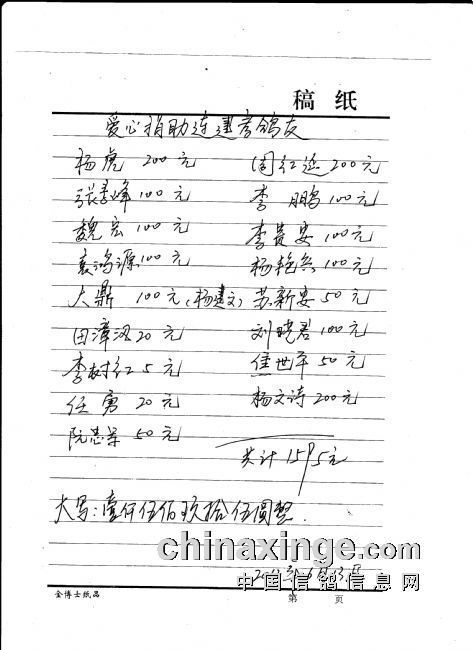 稿 纸
爱心捐助连建彦鸽友
杨虎 200元 周红延 200元
张孝峰 100元 李鹏 100元
魏宏 100元 李贵安 100元
袁鸿源 100元 杨艳兵 100元
大鼎 100元(杨建文) 苏新安 50元
田漳河 20元 刘晓君 100元
李树红 5元 佳世平 50元
任勇 20元 杨文诗 200元
阮志军 50元
共计 1595元
大写:壹仟伍佰玖拾伍圆整.
chinaxinge.com
中国信鸽信息网
金博士纸品 第 页